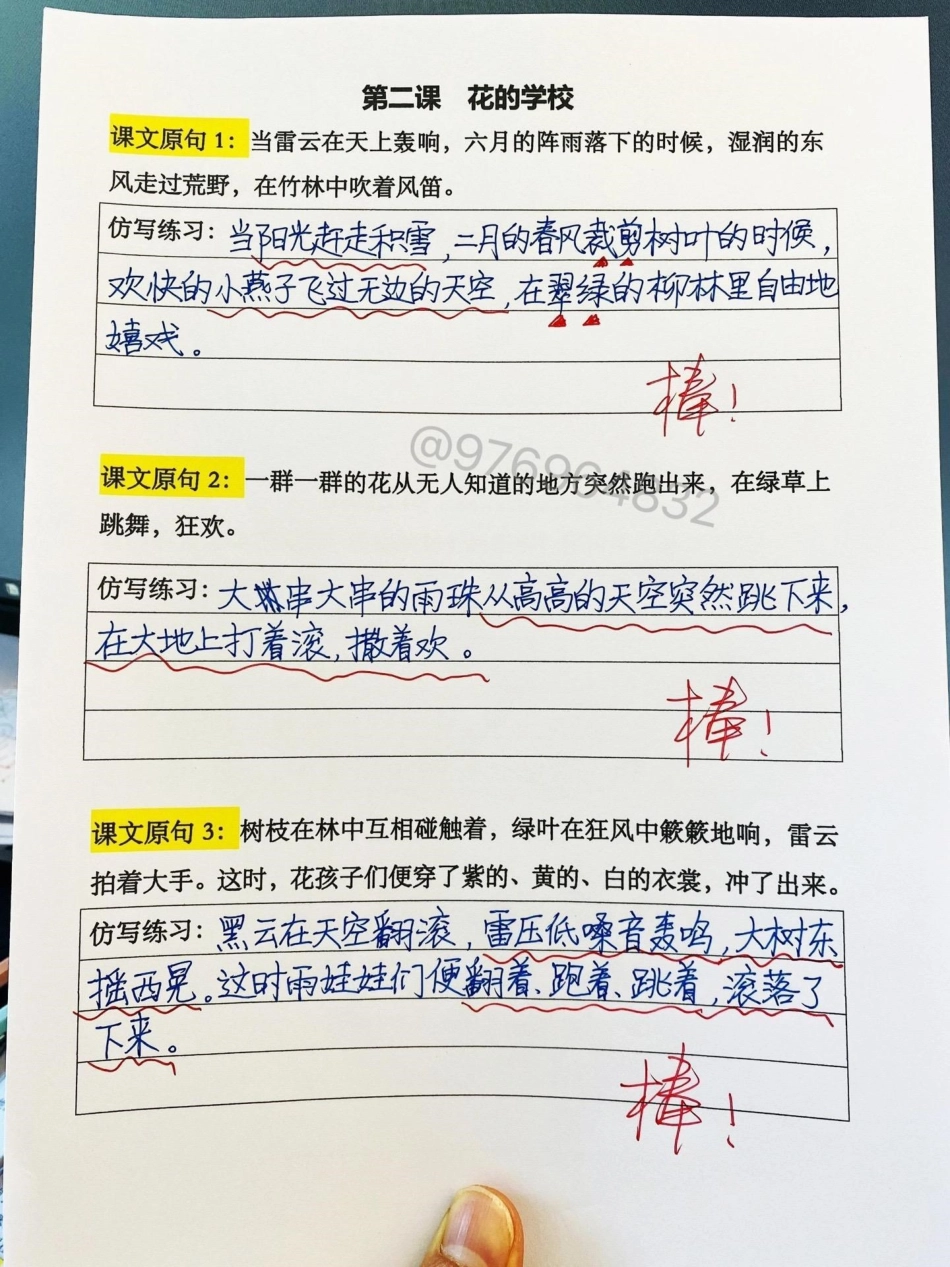 第二课 花的学校
课文原句 1：当雷云在天上轰响，六月的阵雨落下的时候，湿润的东
风走过荒野，在竹林中吹着风笛。
仿写练习：当阳光赶走积雪，二月的春风裁剪树叶的时候，
欢快的小燕子飞过无边的天空，在翠绿的柳林里自由地
嬉戏。
棒！
@976964832
课文原句 2：一群一群的花从无人知道的地方突然跑出来，在绿草上
跳舞，狂欢。
仿写练习：大串大串的雨珠从高高的天空突然跳下来，
在大地上打着滚，撒着欢。
棒！
课文原句 3：树枝在林中互相碰触着，绿叶在狂风中簌簌地响，雷云
拍着大手。这时，花孩子们便穿了紫的、黄的、白的衣裳，冲了出来。
仿写练习：黑云在天空翻滚，雷压低嗓音轰鸣，大树东
摇西晃。这时雨娃娃们便翻着、跑着、跳着，滚落了
下来。
棒！